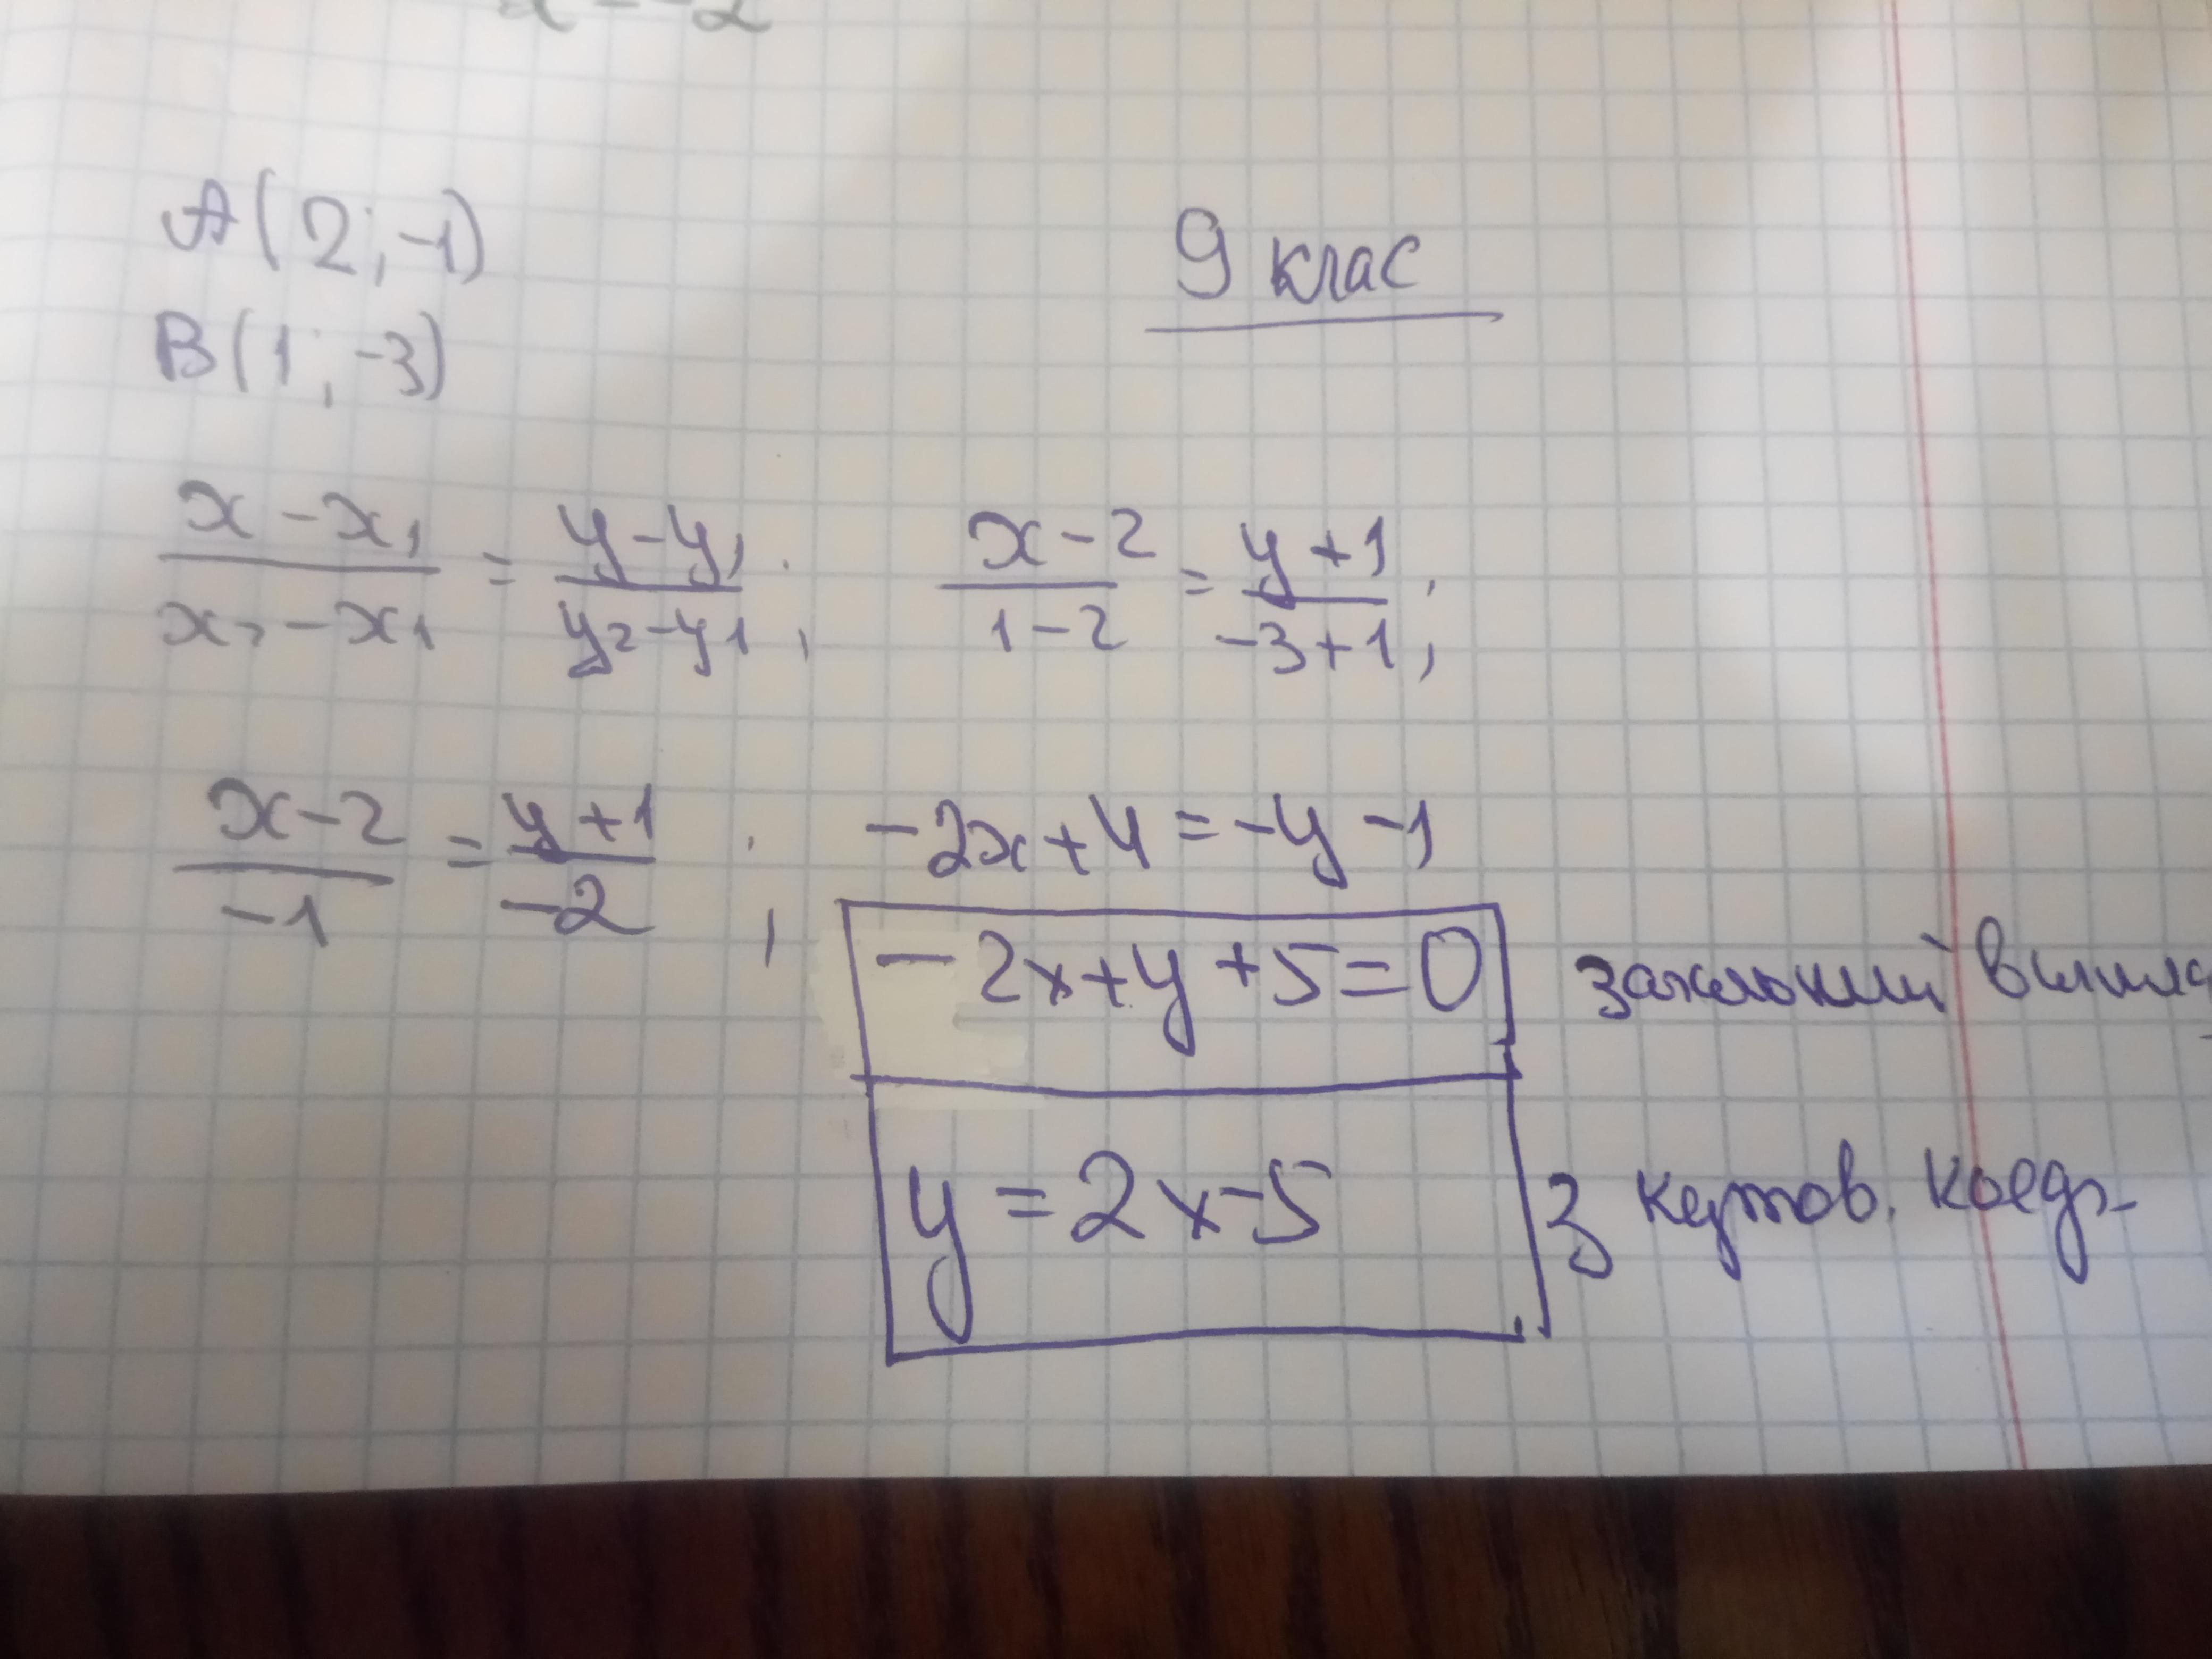 A(2; -1)
9 клас
B(1; -3)
x - x₁ / x₂ - x₁ = y - y₁ / y₂ - y₁ ; x - 2 / 1 - 2 = y + 1 / -3 + 1 ;
x - 2 / -1 = y + 1 / -2 ; -2x + 4 = -y - 1
-2x + y + 5 = 0 загальний вигляд
y = 2x - 5 з кутов. коеф.